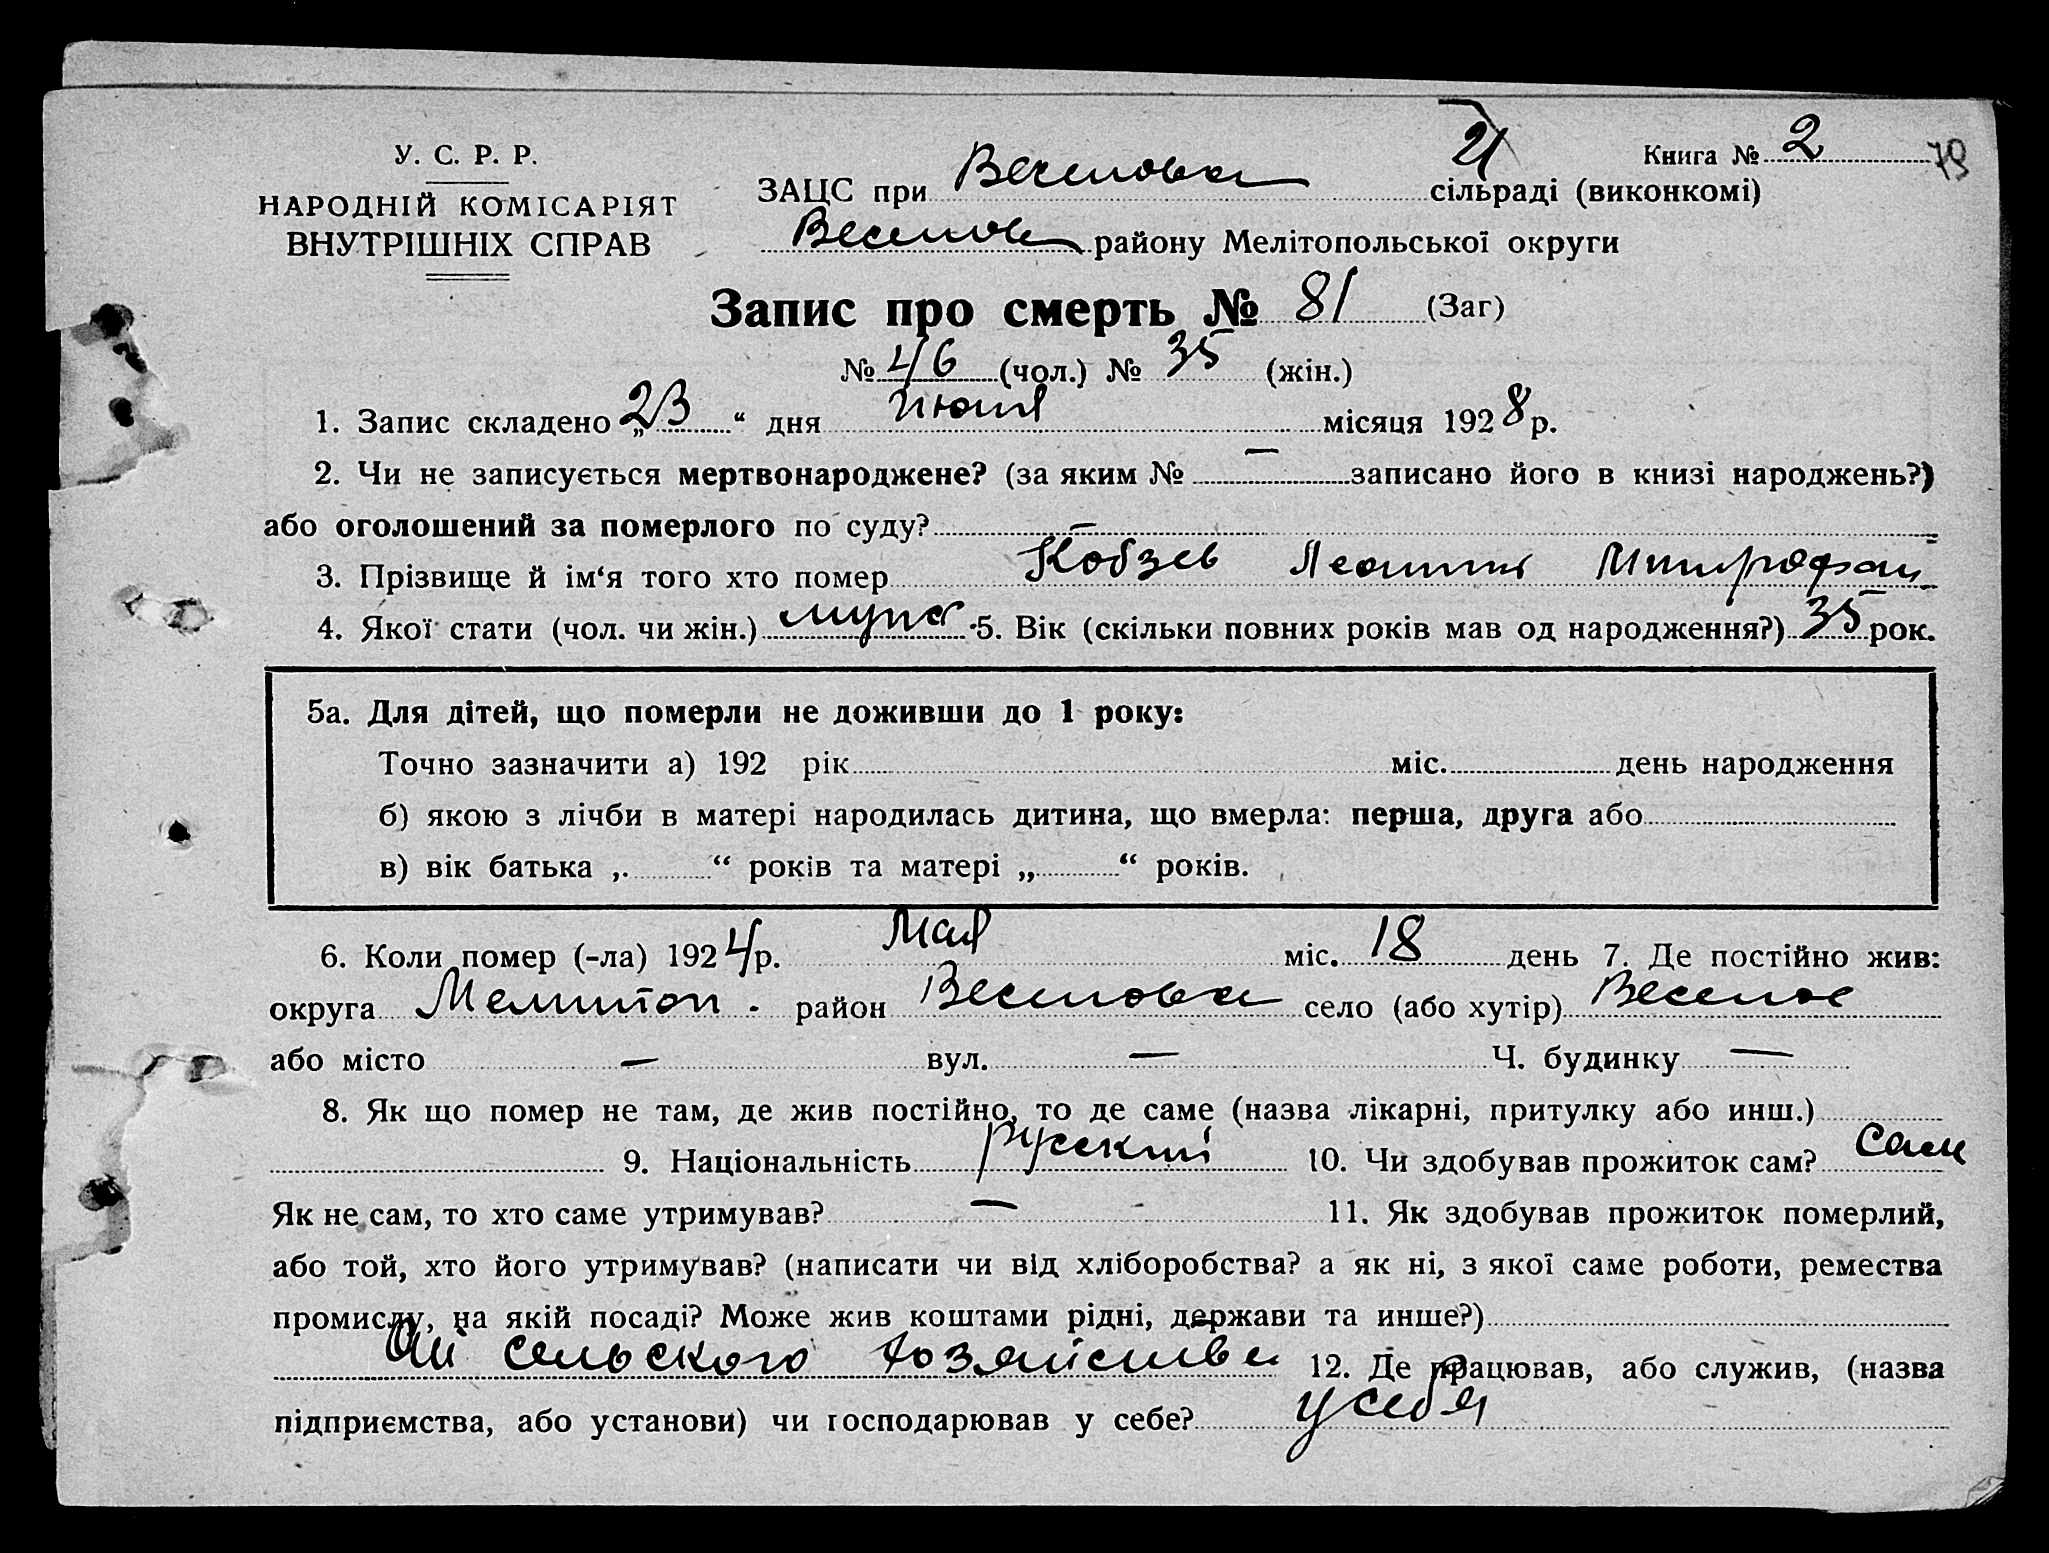 У. С. Р. Р.
НАРОДНІЙ КОМІСАРІЯТ
ВНУТРІШНІХ СПРАВ
21 Книга № 2 79
ЗАЦС при Веселовск сільраді (виконкомі)
Веселов району Мелітопольської округи
Запис про смерть № 81 (Заг)
№ 46 (чол.) № 35 (жін.)
1. Запис складено „23“ дня Июня місяця 1928 р.
2. Чи не записується мертвонароджене? (за яким № — записано його в книзі народжень?)
або оголошений за померлого по суду? —
3. Прізвище й ім‘я того хто помер Кобзев Леонтий Митрофан
4. Якої стати (чол. чи жін.) мужс 5. Вік (скільки повних років мав од народження?) 35 рок.
5а. Для дітей, що померли не доживши до 1 року:
Точно зазначити а) 192 рік міс. день народження
б) якою з лічби в матері народилась дитина, що вмерла: перша, друга або
в) вік батька „ “ років та матері „ “ років.
6. Коли помер (-ла) 1924 р. Мая міс. 18 день 7. Де постійно жив:
округа Мелитоп. район Веселовск село (або хутір) Веселое
або місто — вул. — Ч. будинку —
8. Як що помер не там, де жив постійно, то де саме (назва лікарні, притулку або инш.)
9. Національність русский 10. Чи здобував прожиток сам? сам
Як не сам, то хто саме утримував? — 11. Як здобував прожиток померлий,
або той, хто його утримував? (написати чи від хліборобства? а як ні, з якої саме роботи, ремества
промислу, на якій посаді? Може жив коштами рідні, держави та инше?)
От сельского хозяйства 12. Де працював, або служив, (назва
підприємства, або установи) чи господарював у себе? у себя